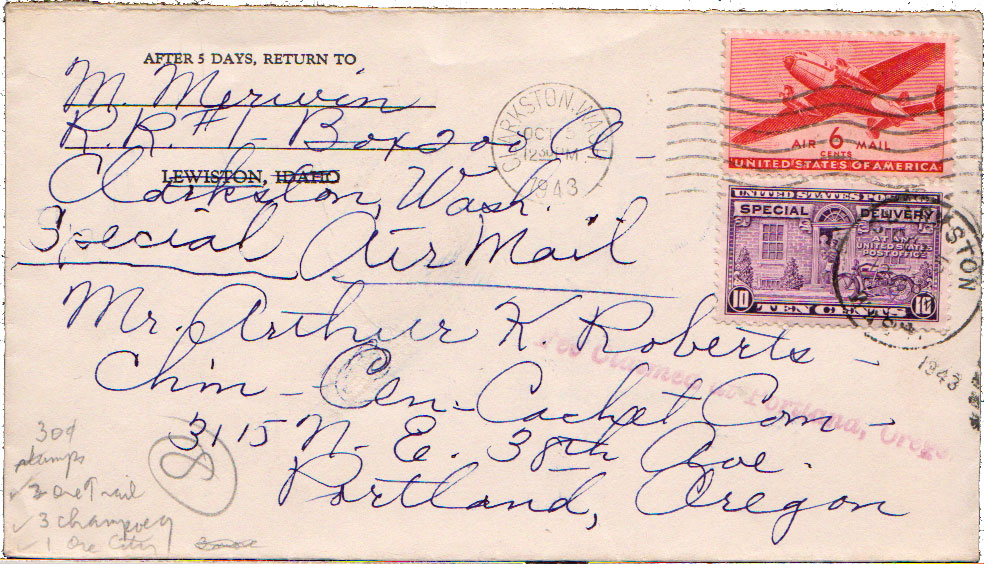 AFTER 5 DAYS, RETURN TO
M. Merwin
R.R.#1- Box 200 A -
LEWISTON, IDAHO
Clarkston, Wash.
Special Air Mail
CLARKSTON, WASH.
OCT 5
12 30 PM
1943
AIR 6 MAIL
CENTS
UNITED STATES OF AMERICA
UNITED STATES POSTAGE
SPECIAL DELIVERY
UNITED STATES
POST OFFICE
10 TEN CENTS 10
1943
Mr. Arthur K. Roberts -
Chm - Cen - Cachet Com -
3115 N. E. 38th Ave.
Portland, Oregon
Fee Claimed at Portland, Oregon
30¢
stamps
2 Ore Trail
3 champoeg
1 Ore City
8